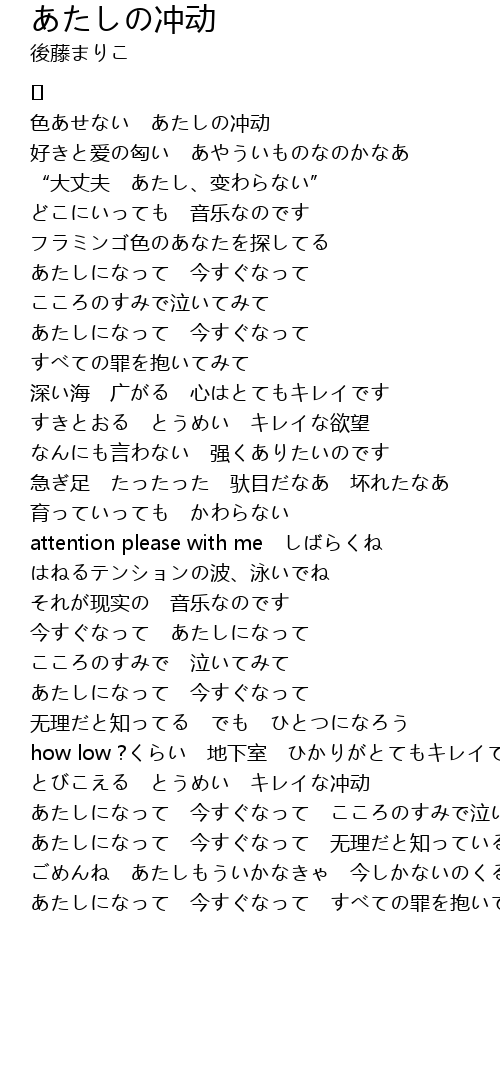 あたしの冲动
後藤まりこ
[]
色あせない　あたしの冲动
好きと爱の匈い　あやういものなのかなあ
“大丈夫　あたし、变わらない”
どこにいっても　音乐なのです
フラミンゴ色のあなたを探してる
あたしになって　今すぐなって
こころのすみで泣いてみて
あたしになって　今すぐなって
すべての罪を抱いてみて
深い海　广がる　心はとてもキレイです
すきとおる　とうめい　キレイな欲望
なんにも言わない　强くありたいのです
急ぎ足　たったった　驮目だなあ　坏れたなあ
育っていっても　かわらない
attention please with me　しばらくね
はねるテンションの波、泳いでね
それが现实の　音乐なのです
今すぐなって　あたしになって
こころのすみで　泣いてみて
あたしになって　今すぐなって
无理だと知ってる　でも　ひとつになろう
how low ?くらい　地下室　ひかりがとてもキレイで
とびこえる　とうめい　キレイな冲动
あたしになって　今すぐなって　こころのすみで泣い
あたしになって　今すぐなって　无理だと知っている
ごめんね　あたしもういかなきゃ　今しかないのくる
あたしになって　今すぐなって　すべての罪を抱いて